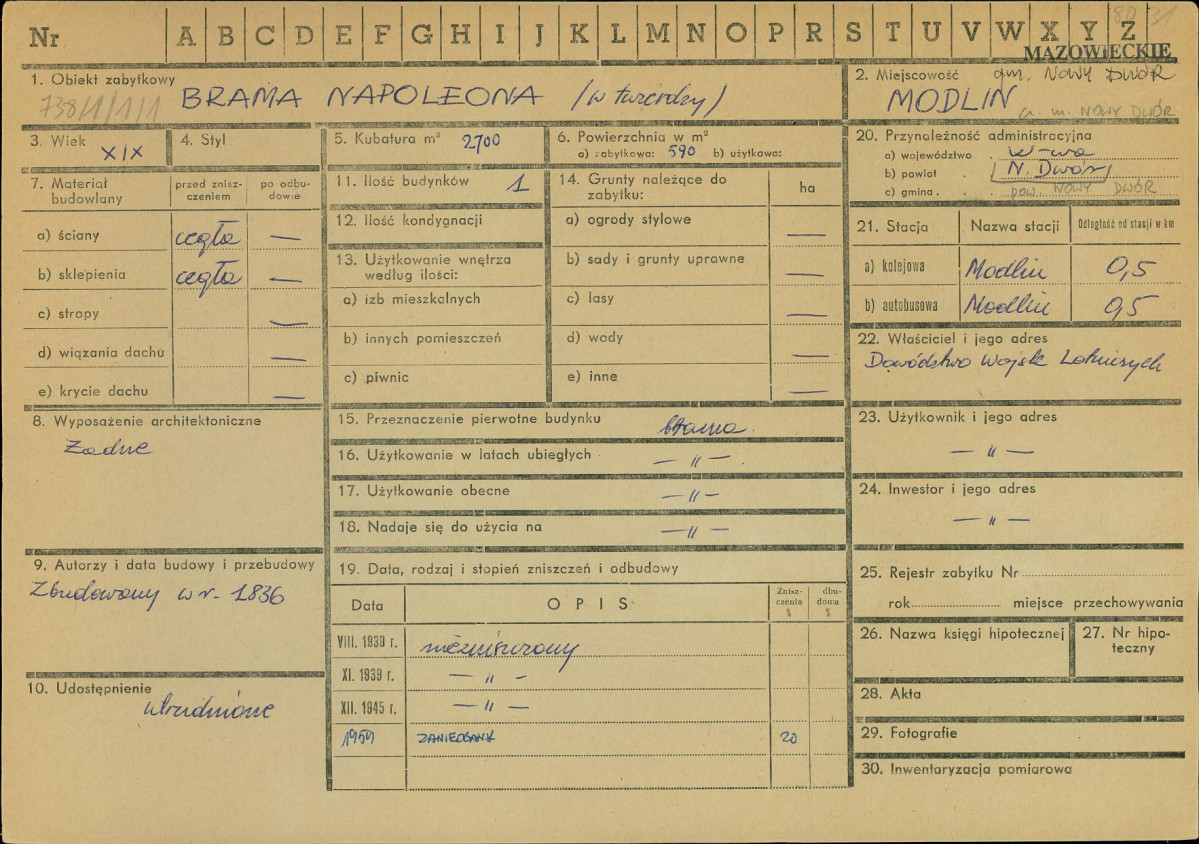 Nr A B C D E F G H I J K L M N O P R S T U V W X Y Z
MAZOWIECKIE
1. Obiekt zabytkowy
738/1/1/1 BRAMA NAPOLEONA (w twierdzy)
2. Miejscowość gm. NOWY DWÓR
MODLIN
m. NOWY DWÓR
3. Wiek XIX
4. Styl
5. Kubatura m³ 2700
6. Powierzchnia w m²
a) zabytkowa: 590 b) użytkowa:
20. Przynależność administracyjna
a) województwo W-wa
b) powiat N. Dwór
c) gmina pow. NOWY DWÓR
7. Materiał budowlany
przed zniszczeniem
po odbudowie
a) ściany cegła —
b) sklepienia cegła —
c) stropy —
d) wiązania dachu —
e) krycie dachu —
11. Ilość budynków 1
12. Ilość kondygnacji
13. Użytkowanie wnętrza
według ilości:
a) izb mieszkalnych
b) innych pomieszczeń
c) piwnic
14. Grunty należące do
zabytku: ha
a) ogrody stylowe —
b) sady i grunty uprawne —
c) lasy —
d) wody —
e) inne —
21. Stacja Nazwa stacji Odległość od stacji w km
a) kolejowa Modlin 0,5
b) autobusowa Modlin 0,5
22. Właściciel i jego adres
Dowództwo Wojsk Lotniczych
8. Wyposażenie architektoniczne
Żadne
15. Przeznaczenie pierwotne budynku brama.
16. Użytkowanie w latach ubiegłych — „ —
17. Użytkowanie obecne — „ —
18. Nadaje się do użycia na — „ —
23. Użytkownik i jego adres
— „ —
24. Inwestor i jego adres
— „ —
9. Autorzy i data budowy i przebudowy
Zbudowany w r. 1836
10. Udostępnienie
utrudnione
19. Data, rodzaj i stopień zniszczeń i odbudowy
Data OPIS Zniszczenia % dbudowa %
VIII. 1939 r. niezniszczony
XI. 1939 r. — „ —
XII. 1945 r. — „ —
1959 ZANIEDBANY 20
25. Rejestr zabytku Nr
rok miejsce przechowywania
26. Nazwa księgi hipotecznej
27. Nr hipoteczny
28. Akta
29. Fotografie
30. Inwentaryzacja pomiarowa